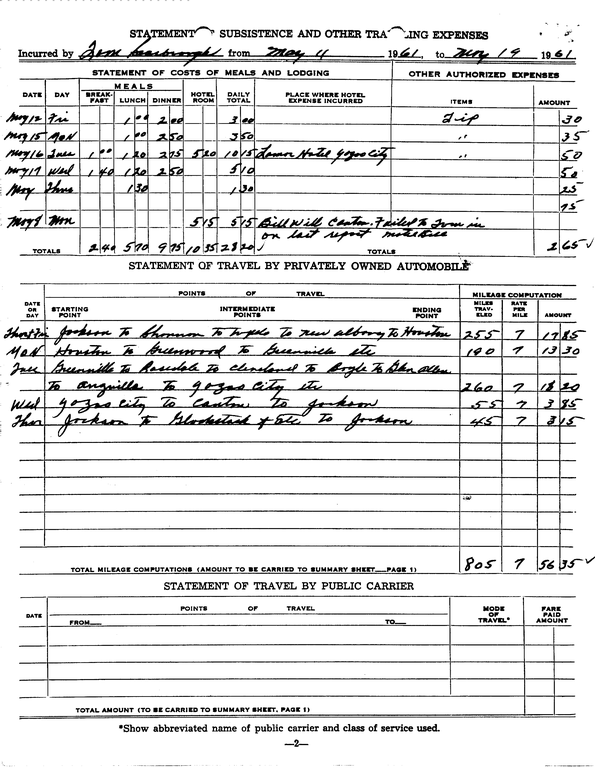 STATEMENT SUBSISTENCE AND OTHER TRA ING EXPENSES
Incurred by Tom Scarbrough from May 4 1961, to May 19 1961
STATEMENT OF COSTS OF MEALS AND LODGING OTHER AUTHORIZED EXPENSES
DATE DAY MEALS HOTEL ROOM DAILY TOTAL PLACE WHERE HOTEL EXPENSE INCURRED ITEMS AMOUNT
BREAK-FAST LUNCH DINNER
May 12 Fri 1 00 2 00 3 00 Tip 30
May 15 Mon 1 00 2 50 3 50 " 35
May 16 Tues 1 00 1 20 2 75 5 20 10 15 Lamar Hotel Yazoo City " 50
May 17 Wed 1 40 1 20 2 50 5 10 50
May Thus 1 30 1 30 25
75
May 8 Mon 5 15 5 15 Bill Will Canton. Failed to Turn in
on last report motel Bill
TOTALS 2 40 5 70 9 75 10 35 28 20 ✓ TOTALS 2 65 ✓
STATEMENT OF TRAVEL BY PRIVATELY OWNED AUTOMOBILE
DATE OR DAY POINTS OF TRAVEL MILEAGE COMPUTATION
STARTING POINT INTERMEDIATE POINTS ENDING POINT MILES TRAV-ELED RATE PER MILE AMOUNT
Jackson to Shannon to Tupelo to New Albany to Houston 255 7 17 85
Mon Houston to Greenwood to Greenville etc 190 7 13 30
Tues Greenville to Rosedale to Cleveland to Boyle to Glen Allen
to Anguilla to Yazoo City etc 260 7 18 20
Wed Yazoo City to Canton to Jackson 55 7 3 85
Thur Jackson to & Etc. to Jackson 45 7 3 15
TOTAL MILEAGE COMPUTATIONS (AMOUNT TO BE CARRIED TO SUMMARY SHEET......PAGE 1) 805 7 56 35 ✓
STATEMENT OF TRAVEL BY PUBLIC CARRIER
DATE POINTS OF TRAVEL MODE OF TRAVEL* FARE PAID AMOUNT
FROM TO
TOTAL AMOUNT (TO BE CARRIED TO SUMMARY SHEET, PAGE 1)
*Show abbreviated name of public carrier and class of service used.
—2—